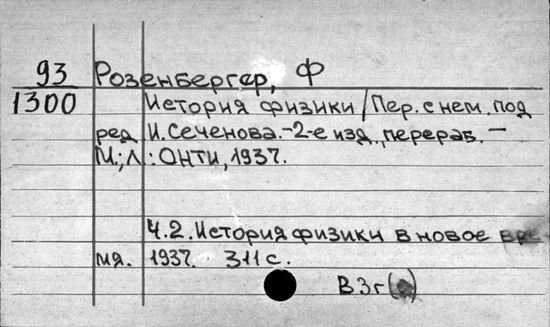 93 Розенбергер, Ф
1300 История физики / Пер. с нем. под
ред И. Сеченова. - 2-е изд., перераб. -
М.; Л.: ОНТИ, 1937.
Ч.2. История физики в новое вре
мя. 1937. 311 с.
В3г(